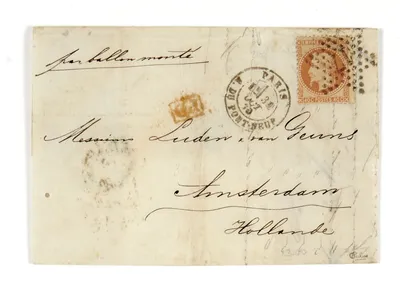 par ballon monté
PARIS
R. DU PONT-NEUF
PD
Messieurs Luden & van Geuns
Amsterdam
Hollande